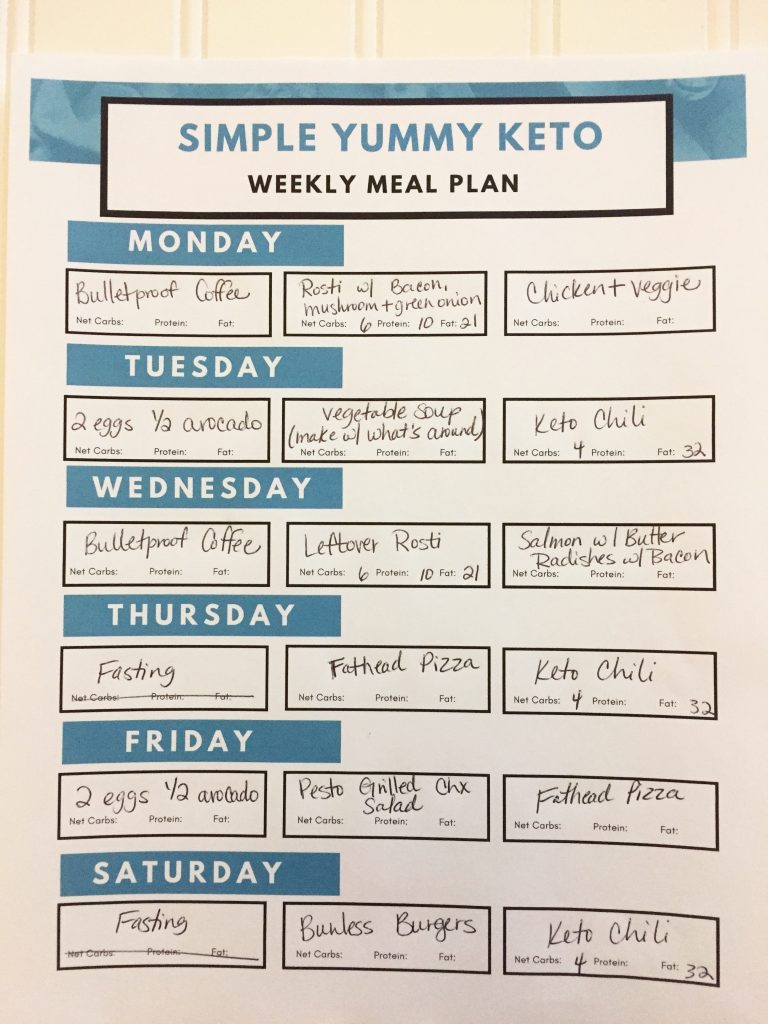 SIMPLE YUMMY KETO
WEEKLY MEAL PLAN
MONDAY
Bulletproof Coffee
Net Carbs: Protein: Fat:
Rosti w/ Bacon,
mushroom + green onion
Net Carbs: 6 Protein: 10 Fat: 21
Chicken + Veggie
Net Carbs: Protein: Fat:
TUESDAY
2 eggs 1/2 avocado
Net Carbs: Protein: Fat:
Vegetable Soup
(make w/ what's around)
Net Carbs: Protein: Fat:
Keto Chili
Net Carbs: 4 Protein: Fat: 32
WEDNESDAY
Bulletproof Coffee
Net Carbs: Protein: Fat:
Leftover Rosti
Net Carbs: 6 Protein: 10 Fat: 21
Salmon w/ Butter
Radishes w/ Bacon
Net Carbs: Protein: Fat:
THURSDAY
Fasting
Net Carbs: Protein: Fat:
Fathead Pizza
Net Carbs: Protein: Fat:
Keto Chili
Net Carbs: 4 Protein: Fat: 32
FRIDAY
2 eggs 1/2 avocado
Net Carbs: Protein: Fat:
Pesto Grilled Chx
Salad
Net Carbs: Protein: Fat:
Fathead Pizza
Net Carbs: Protein: Fat:
SATURDAY
Fasting
Net Carbs: Protein: Fat:
Bunless Burgers
Net Carbs: Protein: Fat:
Keto Chili
Net Carbs: 4 Protein: Fat: 32